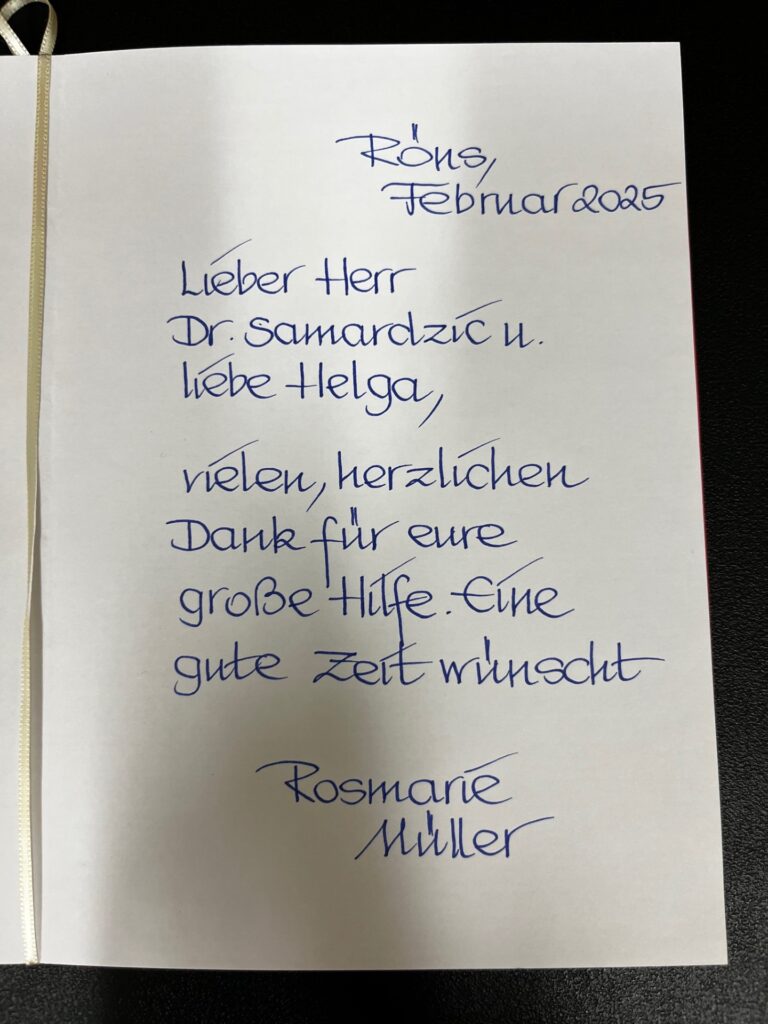 Röns,
Februar 2025
Lieber Herr
Dr. Samardzic u.
liebe Helga,
vielen, herzlichen
Dank für eure
große Hilfe. Eine
gute Zeit wünscht
Rosmarie
Müller